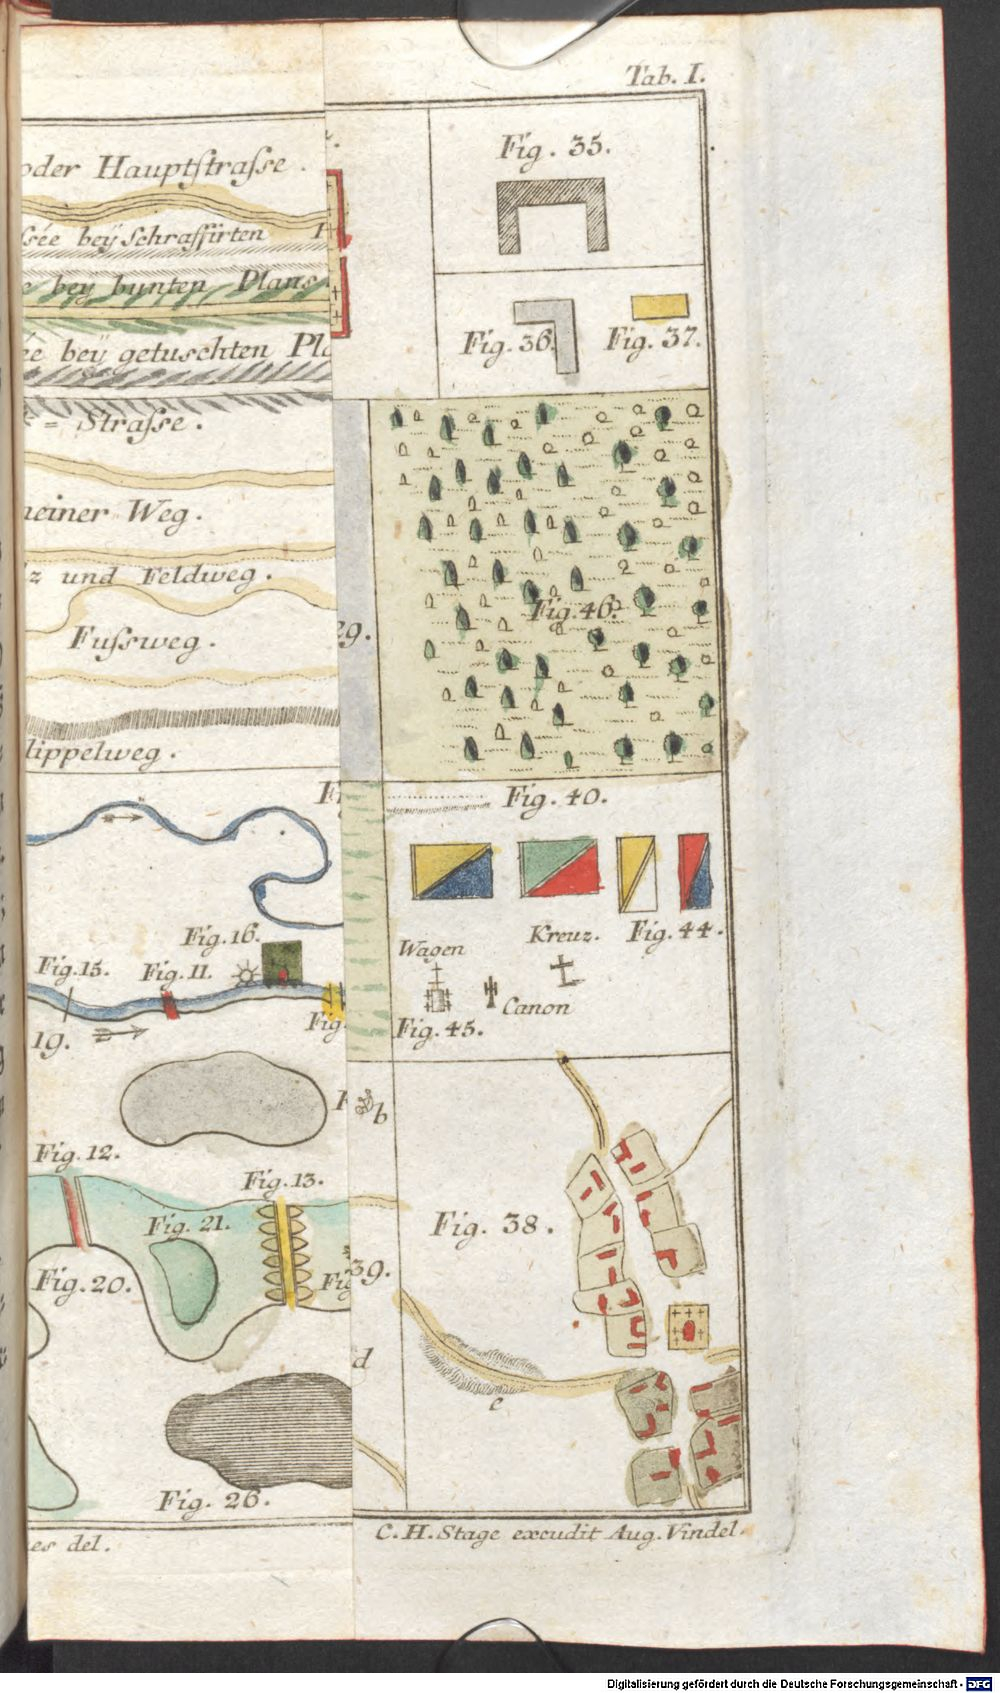 Tab. I.
oder Hauptſtraſse.
ſsée beÿ Schraffirten
e beÿ bunten Plans
ée beÿ getuschten Pla
= Straſse.
einer Weg.
z und Feldweg.
Fuſsweg.
lippelweg.
Fig. 35.
Fig. 36.
Fig. 37.
eg.
Fig. 46.
Fig. 40.
Fig. 16.
Fig. 15.
Fig. 11.
Fig.
19.
Wagen
Kreuz.
Fig. 44.
Canon
Fig. 45.
b
Fig. 12.
Fig. 13.
Fig. 21.
Fig. 20.
Fig
39.
Fig. 38.
d
e
Fig. 26.
es del.
C. H. Stage excudit Aug. Vindel.
Digitalisierung gefördert durch die Deutsche Forschungsgemeinschaft - DFG